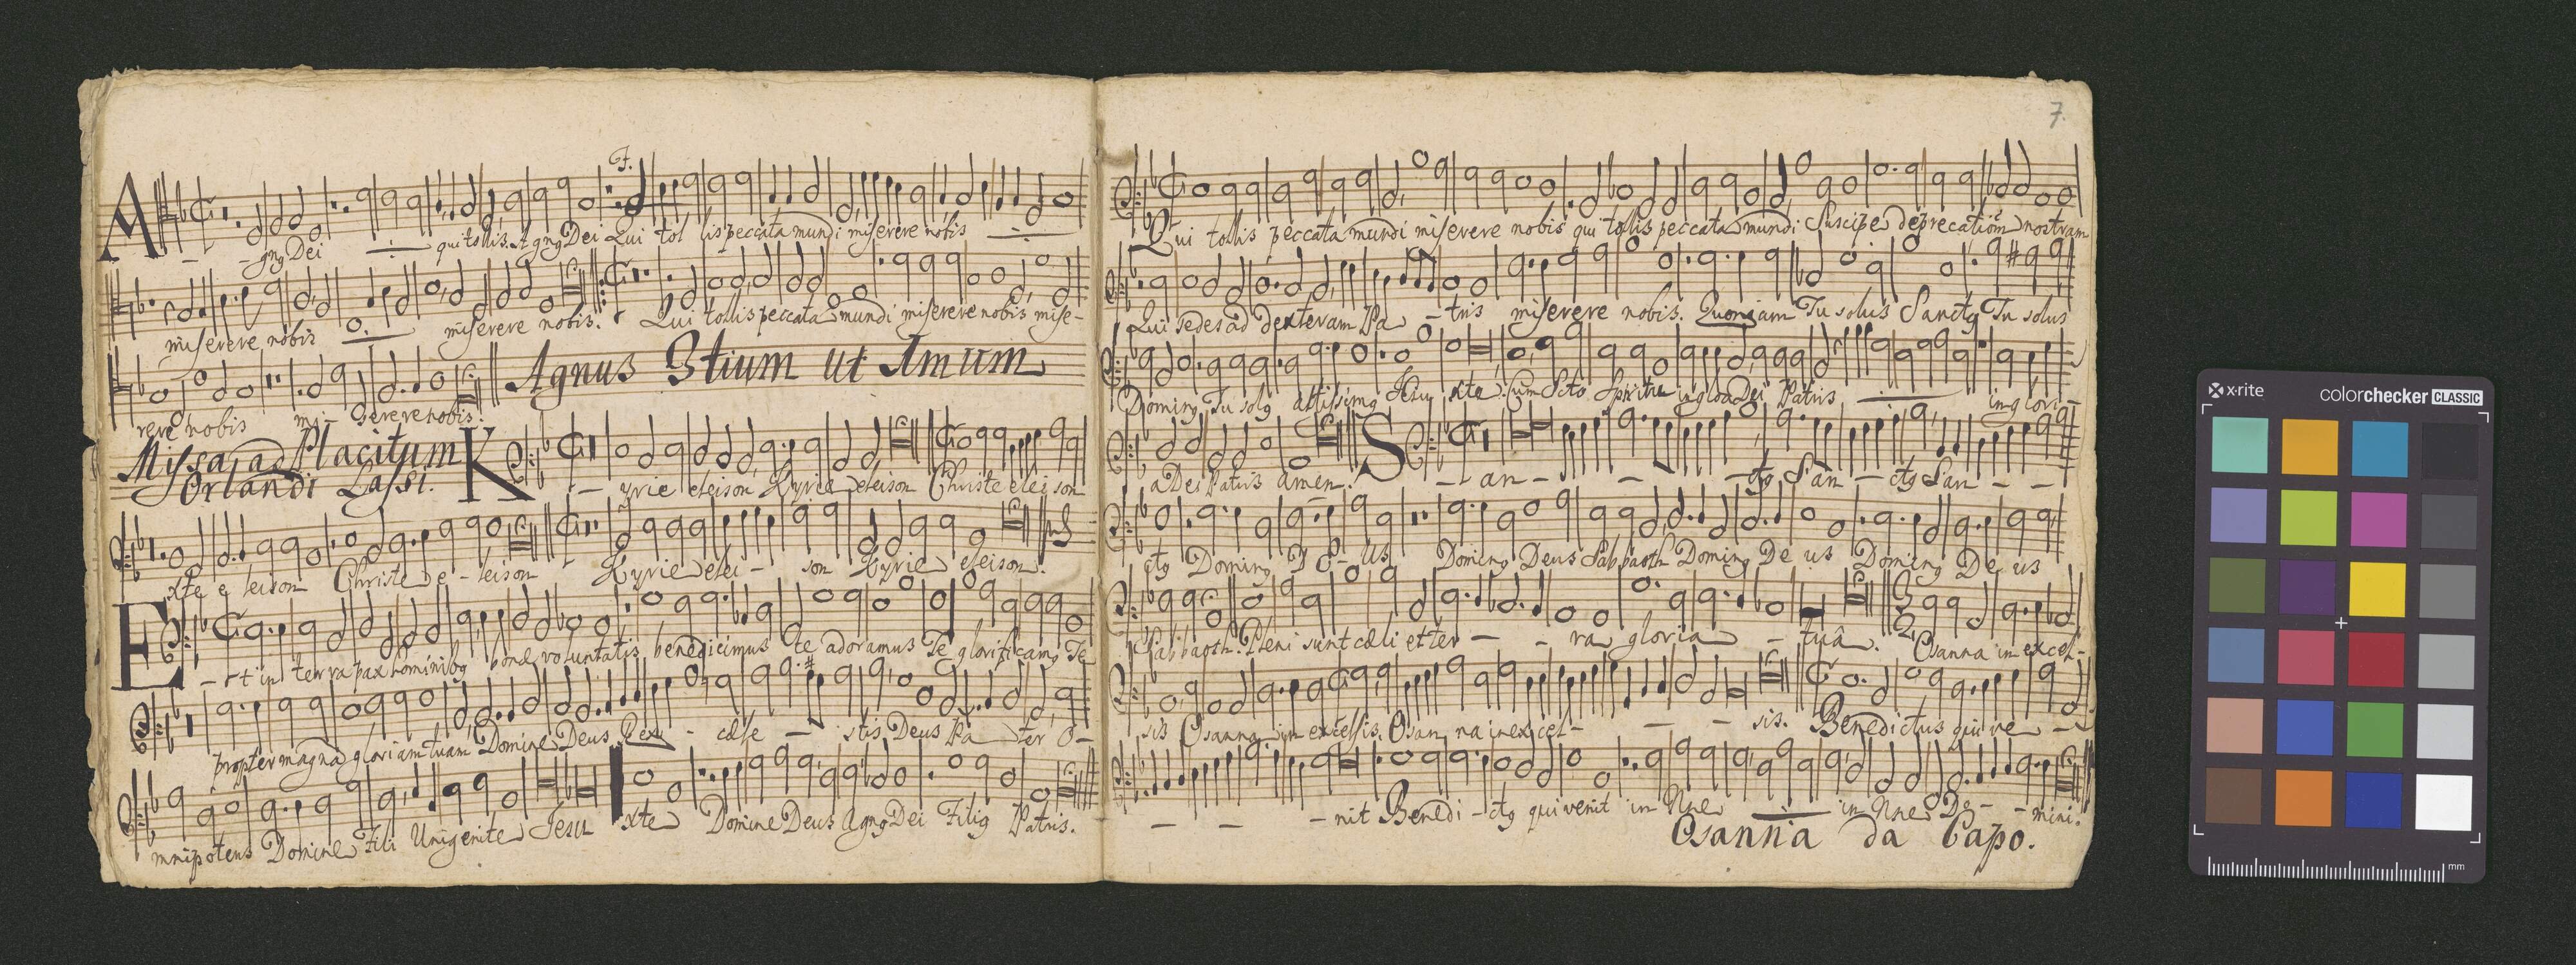 F.
A - - gng Dei qui tollis. Agng Dei Qui tol lis peccata mundi miserere nobis
miserere nobis miserere nobis. Qui tollis peccata mundi miserere nobis mise-
rere nobis mi- serere nobis.
Agnus 3tium ut Imum
Missa ad Placitum
Orlandi Lassi.
K - yrie eleison Kyrie eleison Christe elei son
xte e leison Christe e - leison Kyrie elei - son Kyrie eleison.
E - t in terra pax hominibg bonæ voluntatis benedicimus te adoramus Te glorificamg Te
propter magnā gloriam tuam Domine Deus Rex - cæle - stis Deus Pa ter o-
mnipotens Domine Fili Unigenite Jesu xte Domine Deus Agng Dei Filig Patris.
7.
Qui tollis peccata mundi miserere nobis qui tollis peccata mundi Suscipe deprecationē nostram
Qui sedes ad dexteram Pa - tris miserere nobis. Quoniam Tu solus Sanctg Tu solus
Doming Tu solg altissimg Jesu xte. Cum Scto Spiritu in gloa Dei Patris in glori-
a Dei Patris amen. S - an - - - ctg San - ctg San - -
ctg Doming D E - us Doming Deus Sabbaoth Doming De us Doming De us
Sabbaoth. Pleni sunt cæli et ter - - ra gloria - tuâ. Osanna in excel-
sis Osanna in excelsis. Osan na in excel - - - sis. Benedictus qui ve -
- - - nit Benedi - ctg qui venit in Nne in Nne Do - - mini.
Osanna da Capo.
x·rite
colorchecker CLASSIC
mm